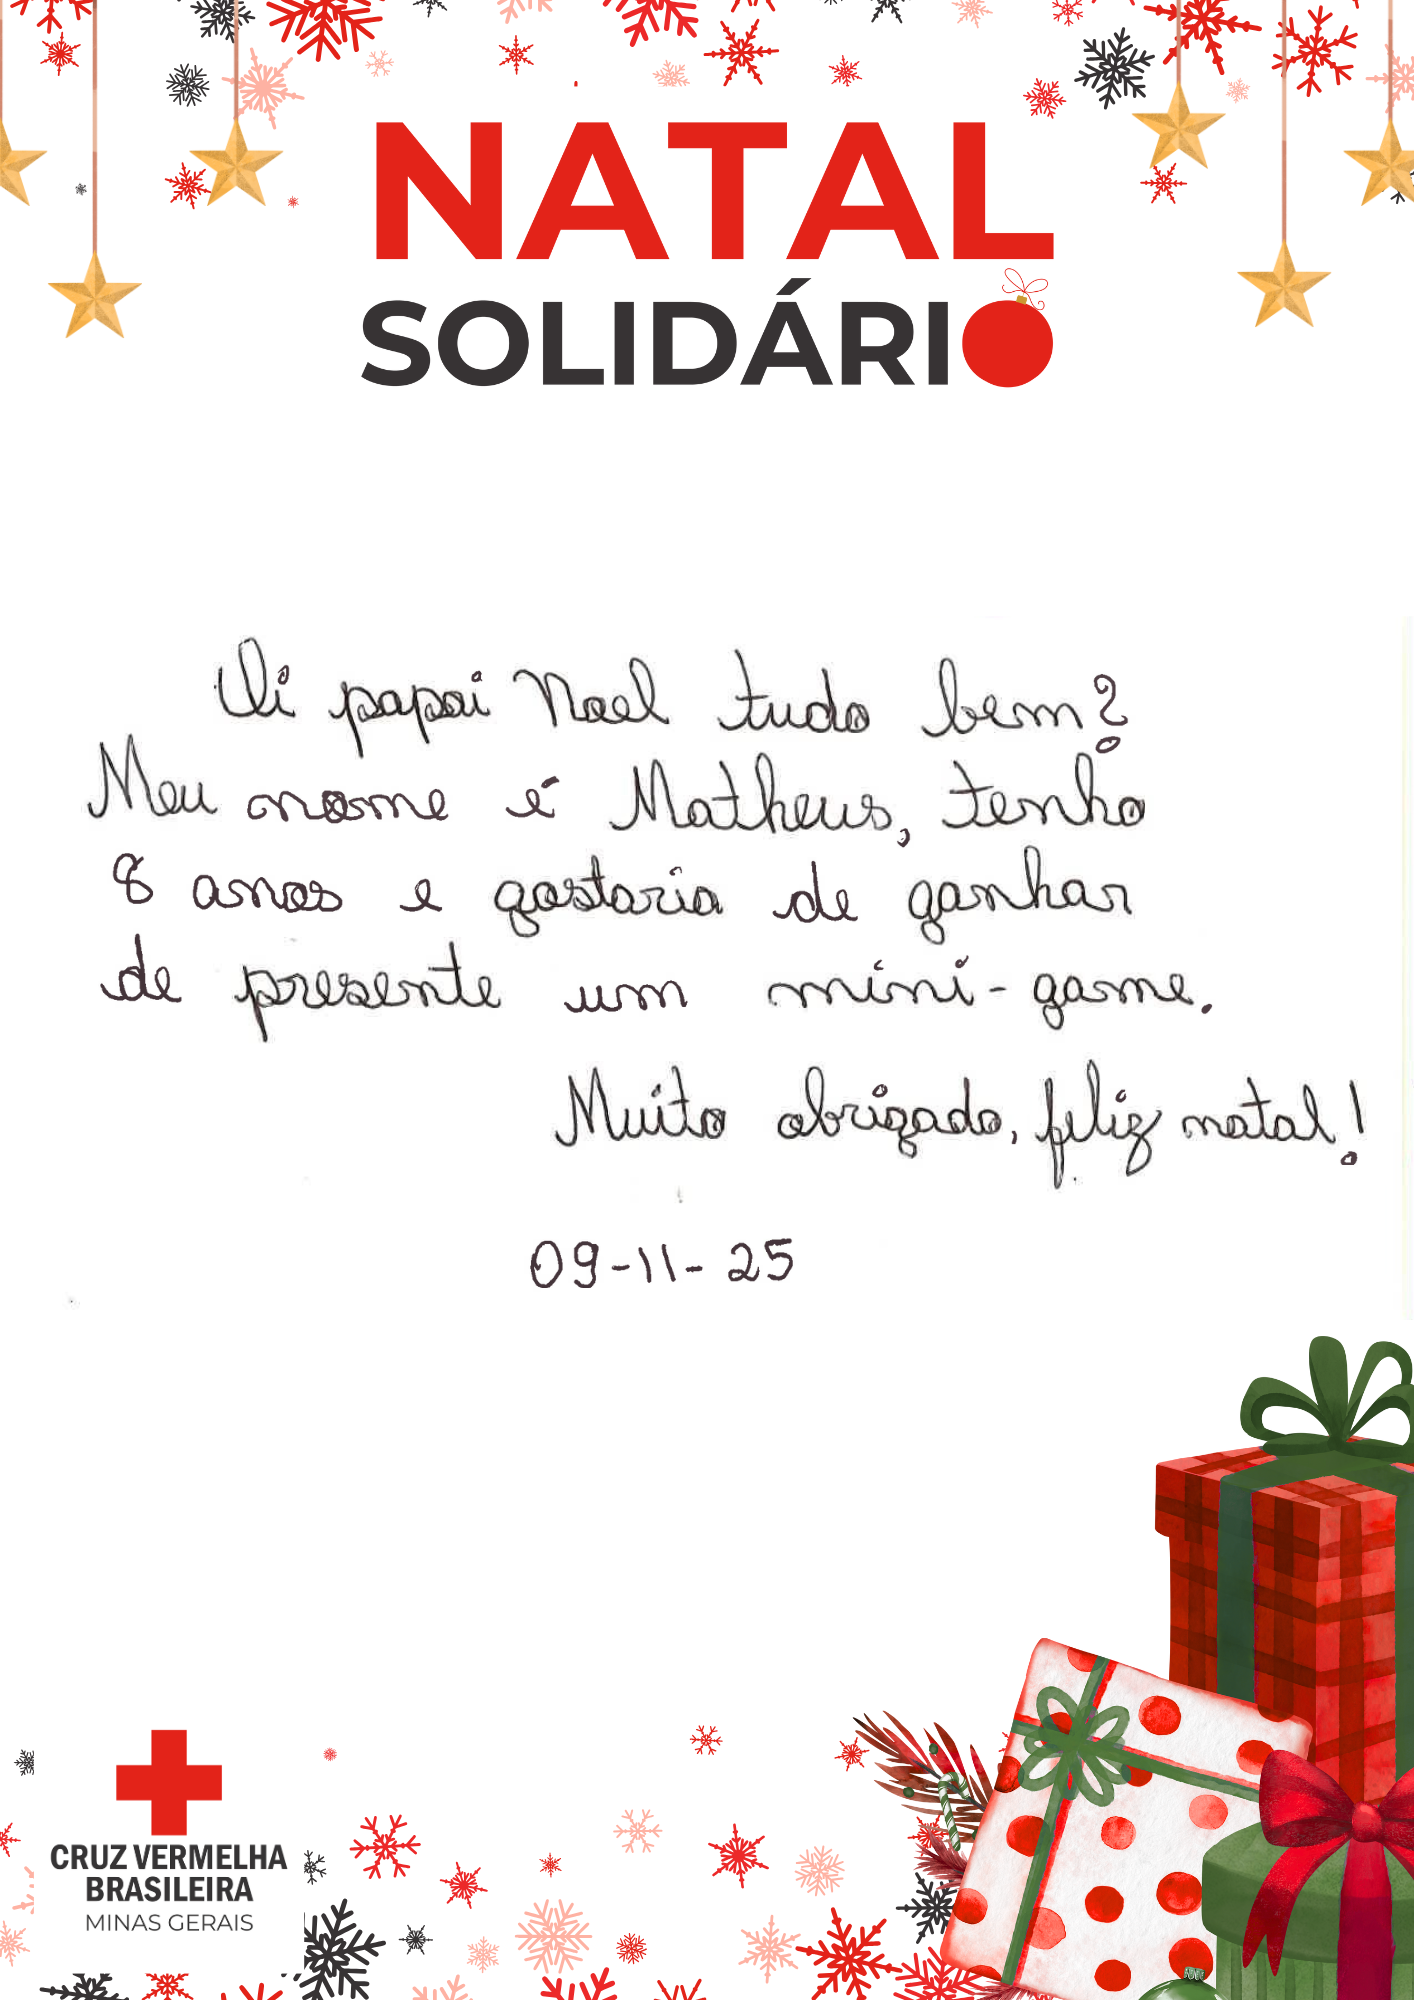 NATAL
SOLIDÁRIO
Oi papai Noel tudo bem?
Meu nome é Matheus, tenho
8 anos e gostaria de ganhar
de presente um mini-game.
Muito obrigado, feliz natal!
09-11-25
CRUZ VERMELHA
BRASILEIRA
MINAS GERAIS